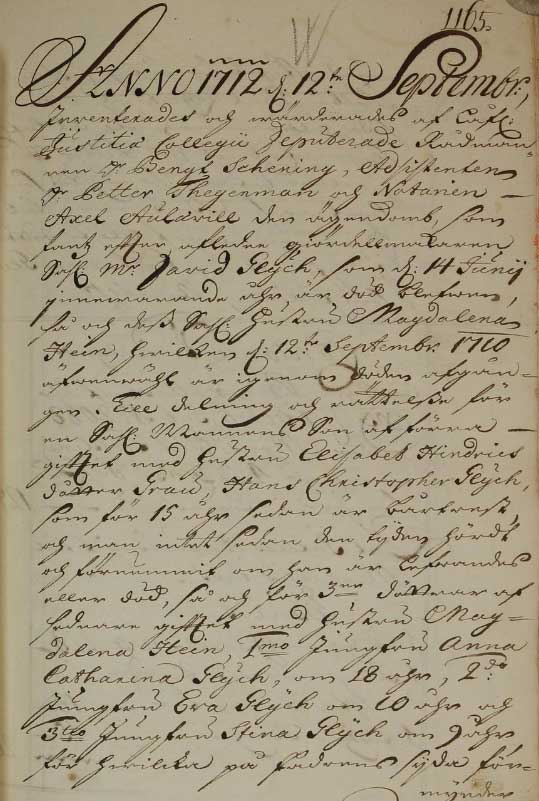 1165.
ANNO 1712 d: 12te Septembr:,
Inventerades och wärderades af Kåfl:
Justitiæ Collegii Deputerade Rådman
nen Hr Bengt Schening, Adsistenten
Hr Petter Thegerman och Notarien
Axel Aulæwill den ägendomb, som
fants efter afledne giördellmakaren
Sahl: Mr David Glÿch, som d: 14 Junij
innewarande åhr, är död blefwen,
så och dess Sahl: hustru Magdalena
Hein, hwilken d: 12te Septembr: 1710
äfwenwähl är igenom döden afgån-
gen. Till delning och rättelse för
en Sahl: Mannens Son af förra
giftet med hustru Elisabet Hindrics
dotter Grau, Hans Christopher Glÿch,
som för 15 åhr sedan är bortrest
och man intet sedan den tijden hördt
och förnummit om han är lefwandes
eller död, så och för 3ne döttrar af
sednare giftet med hustru Mag-
dalena Hein, 1mo Jungfru Anna
Catharina Glÿch, om 18 åhr, 2do
Jungfru Eva Glÿch om 10 åhr och
3tio Jungfru Stina Glÿch om 9 åhr
för hwilka på Fadrens sÿda för-
mynder